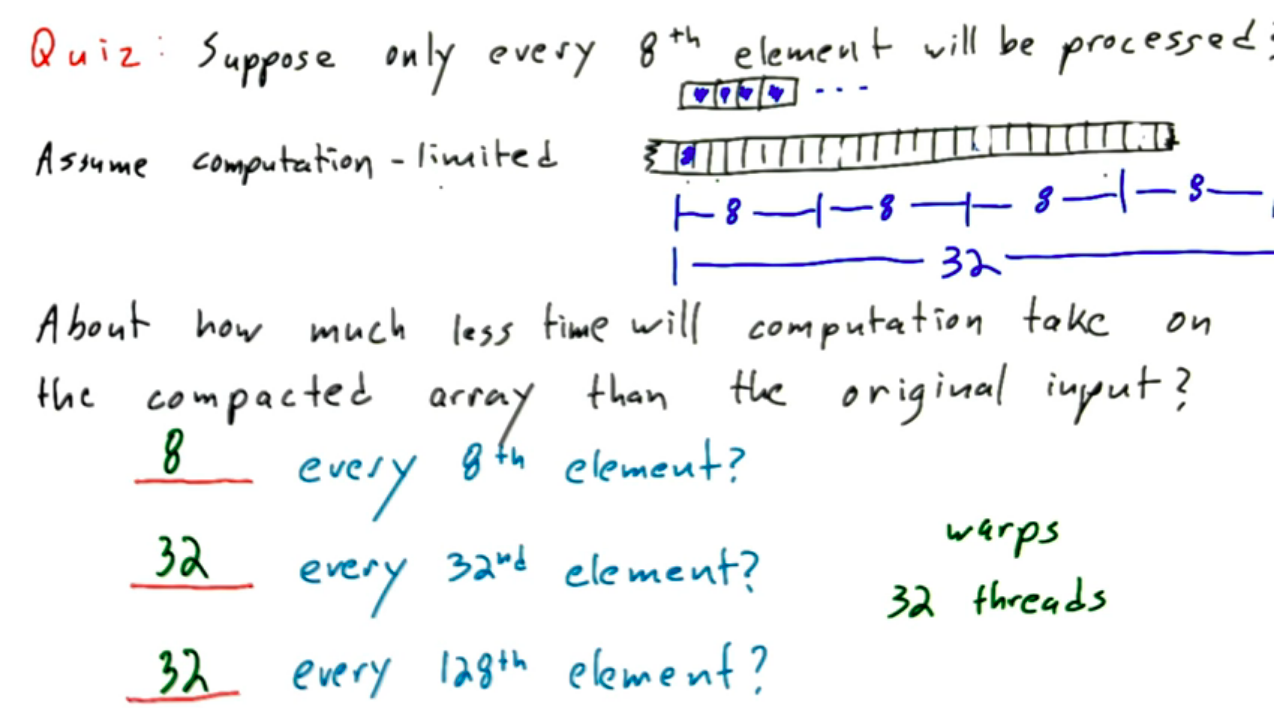 Quiz: Suppose only every 8th element will be processed:
Assume computation-limited
8 8 8 8
32
About how much less time will computation take on
the compacted array than the original input?
8 every 8th element?
32 every 32nd element?
warps
32 threads
32 every 128th element?